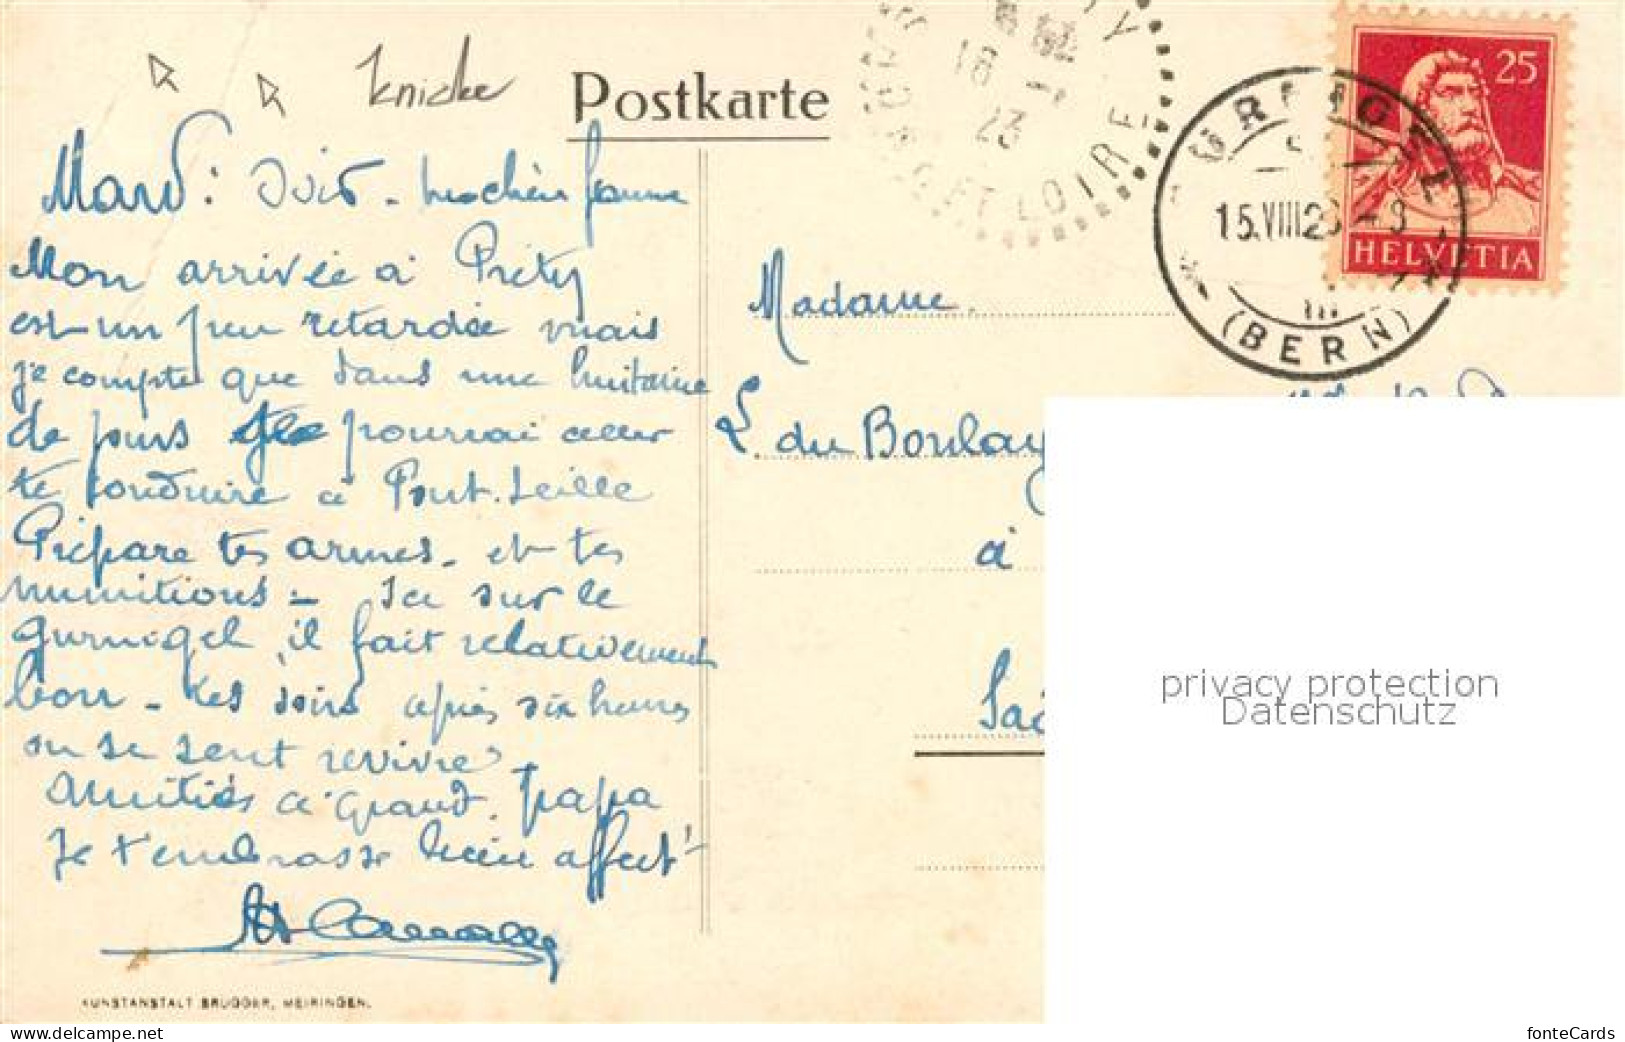 knicke
Postkarte
18
23
ET LOIRE
25
HELVETIA
15.VIII 23 - 9
III
(BERN)
Mardi soir - mon chéri Jeanne
Mon arrivée à Prety
est un peu retardée mais
je compte que dans une huitaine
de jours je pourrai aller
te conduire à Pont-Seille
Prépare tes armes - et tes
munitions - Ici sur le
Gurnigel, il fait relativement
bon - Les soirs après six heures
on se sent revivre
Amitiés à Grand-papa
Je t'embrasse bien affect^t
Madame
L. du Boulay
à
KUNSTANSTALT BRUGGER, MEIRINGEN.
privacy protection
Datenschutz
www.delcampe.net
fonteCards